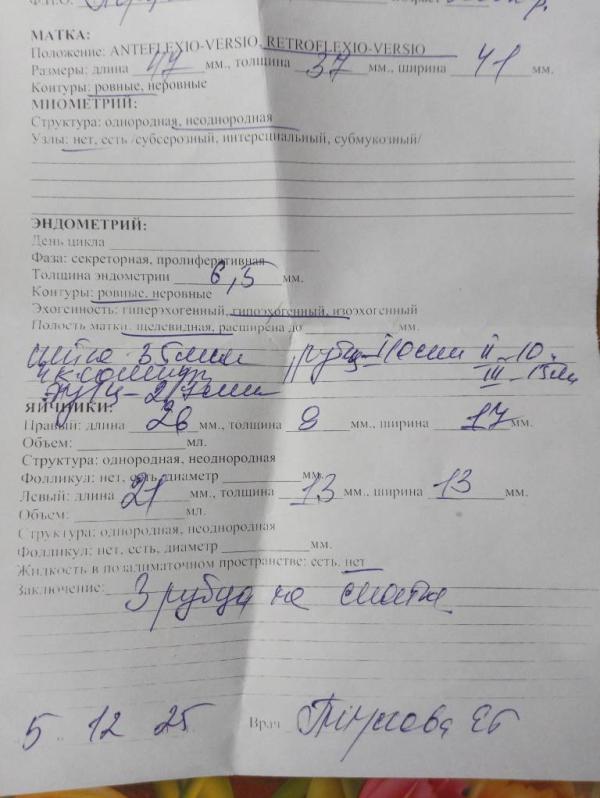 Ф.И.О.
МАТКА:
Положение: ANTEFLEXIO-VERSIO, RETROFLEXIO-VERSIO
Размеры: длина 47 мм., толщина 37 мм., ширина 41 мм.
Контуры: ровные, неровные
МИОМЕТРИЙ:
Структура: однородная, неоднородная
Узлы: нет, есть /субсерозный, интерсциальный, субмукозный/
ЭНДОМЕТРИЙ:
День цикла
Фаза: секреторная, пролиферативная
Толщина эндометрии 6,5 мм.
Контуры: ровные, неровные
Эхогенность: гиперэхогенный, гипоэхогенный, изоэхогенный
Полость матки: щелевидная, расширена до / мм.
шейка 35мм рубц I 10мм II - 10
III - 13мм
ЯИЧНИКИ:
Правый: длина 26 мм., толщина 8 мм., ширина 17 мм.
Объем: мл.
Структура: однородная, неоднородная
Фолликул: нет, есть, диаметр мм.
Левый: длина 21 мм., толщина 13 мм., ширина 13 мм.
Объем: мл.
Структура: однородная, неоднородная
Фолликул: нет, есть, диаметр мм.
Жидкость в позадиматочном пространстве: есть, нет
Заключение: 3 рубца на матке
5 12 25 Врач